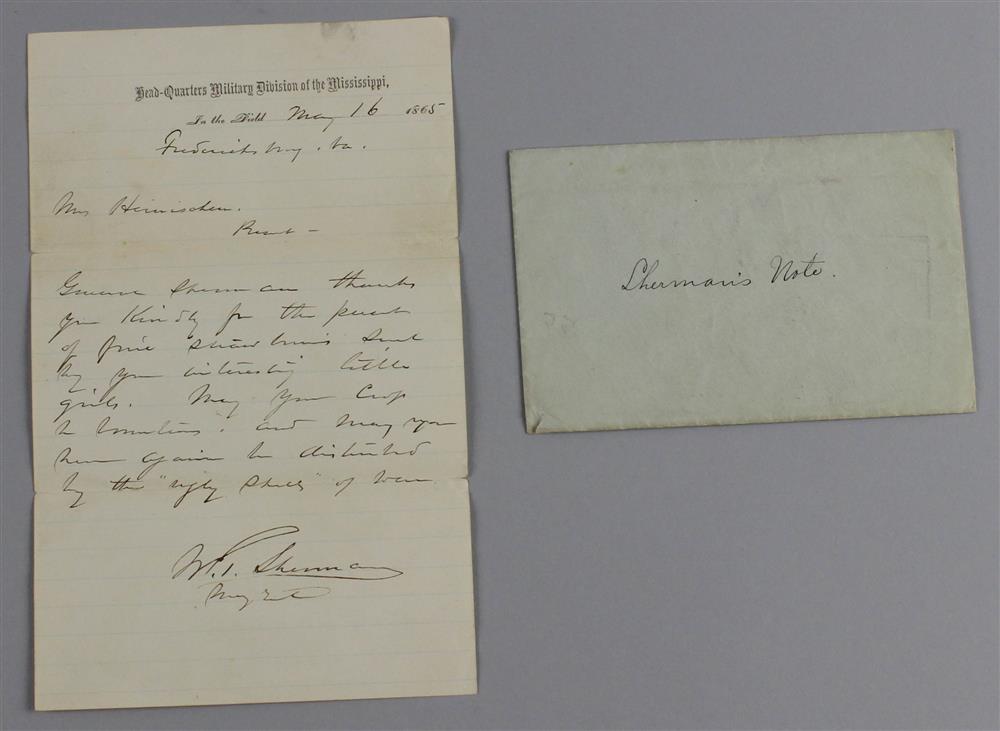 Head-Quarters Military Division of the Mississippi,
In the Field May 16 1865
Fredericksburg, Va.
Mrs
Present –
General Sherman thanks
you kindly for the present
of fine strawberries sent
by your interesting little
girls. May your Crop
be bounteous, and may you
never again be disturbed
by the "ugly Shells" of War
W. T. Sherman
Maj Genl
Sherman's Note.